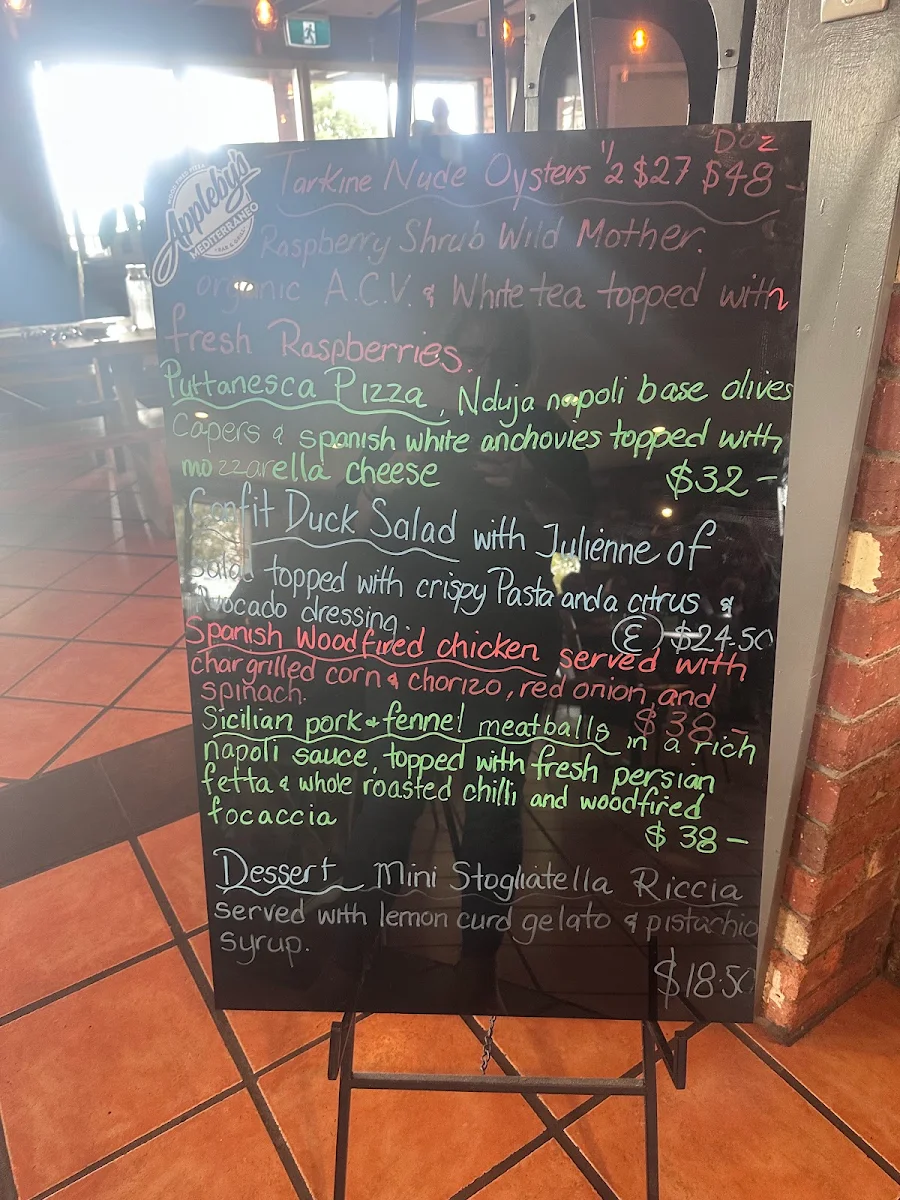 Doz
Tarkine Nude Oysters 1/2 $27 $48-
WOOD FIRED PIZZA
Appleby's
MEDITERRANEO
BAR & GRILL
Raspberry Shrub Wild Mother.
organic A.C.V. & White tea topped with
fresh Raspberries.
Puttanesca Pizza, Nduja napoli base olives
Capers & spanish white anchovies topped with
mozzarella cheese $32-
Confit Duck Salad with Julienne of
Salad topped with crispy Pasta and a citrus &
Avocado dressing. (E) $24.50
Spanish Woodfired chicken served with
chargrilled corn & chorizo, red onion and
spinach. $38-
Sicilian pork & fennel meatballs in a rich
napoli sauce, topped with fresh persian
fetta & whole roasted chilli and woodfired
focaccia $38-
Dessert Mini Stogliatella Riccia
served with lemon curd gelato & pistachio
syrup. $18.50